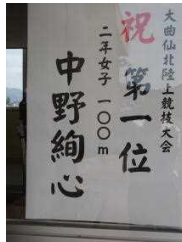 大曲仙北陸上競技大会
祝 第一位
二年女子 一〇〇m
中野絢心